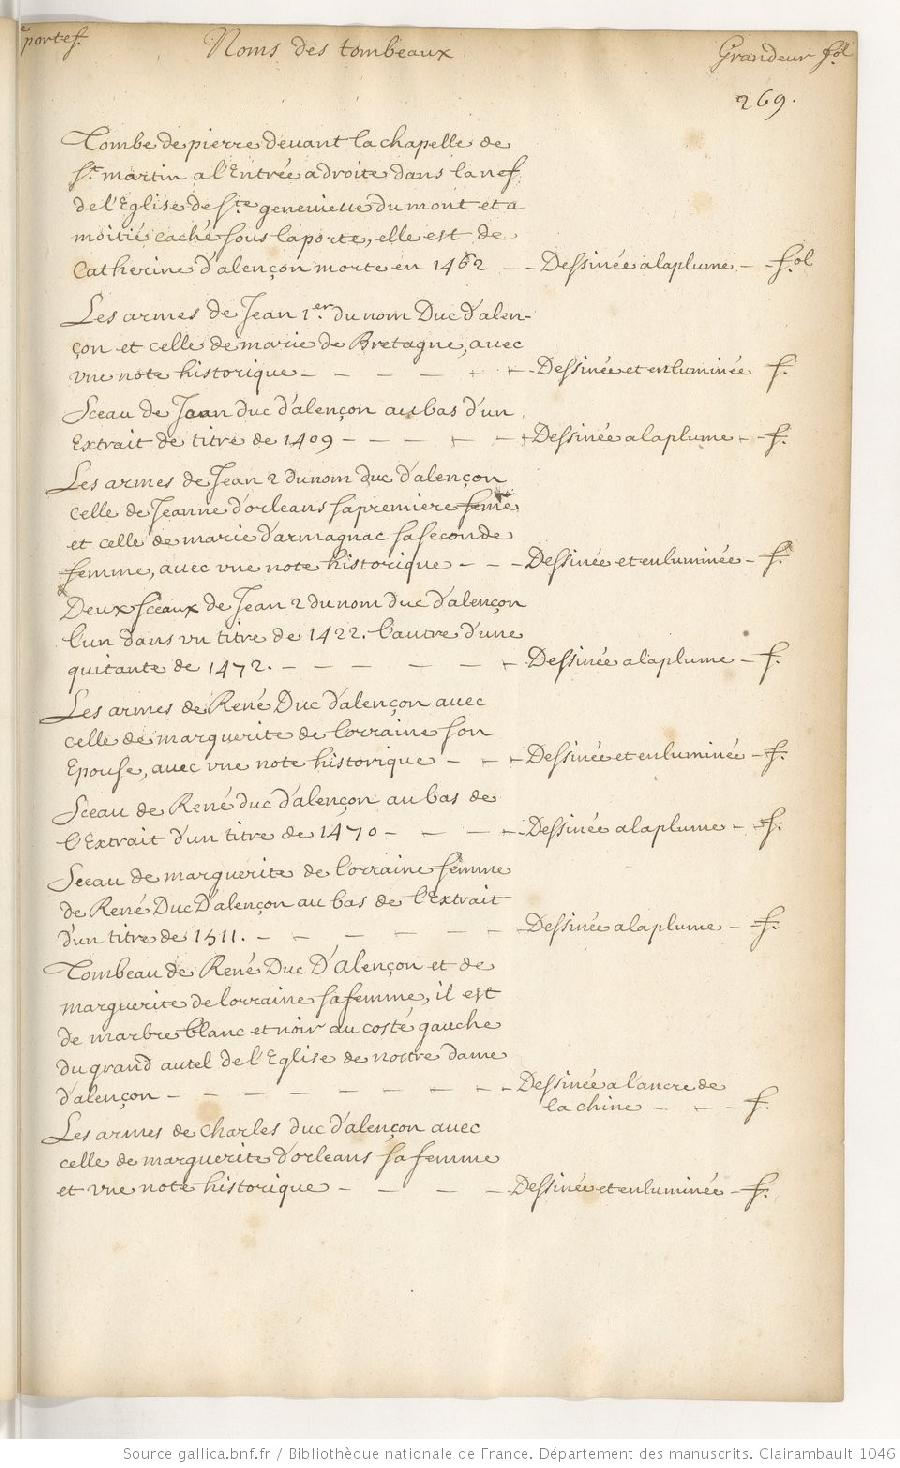 portef. Noms des tombeaux Grandeur fol
269.
Tombe de pierre devant la chapelle de
St. martin a l'Entrée a droite dans la nef
de l'Eglise de Ste genevieve du mont et a
moitié caché sous la porte, elle est de
Catherine d'alençon morte en 1462 -- Dessinée a la plume -- fol
Les armes de Jean 1er. du nom Duc d'alen-
çon et celle de marie de Bretagne, avec
vne note historique - - - - - - Dessinée et enluminée f.
Sceau de Jean duc d'alençon au bas d'un
Extrait de titre de 1409 - - - - - Dessinée a la plume - f.
Les armes de Jean 2 du nom duc d'alençon
celle de Jeanne d'orleans sa premiere feme
et celle de marie d'armagnac sa seconde
femme, avec vne note historique - - - Dessinée et enluminée - f.
Deux sceaux de Jean 2 du nom duc d'alençon
l'un dans vn titre de 1422. l'autre d'une
quitante de 1472. - - - - - - Dessinée a la plume - f.
Les armes de René Duc d'alençon avec
celle de marguerite de lorraine son
Epouse, avec vne note historique - - - Dessinée et enluminée - f.
Sceau de René duc d'alençon au bas de
l'Extrait d'un titre de 1470 - - - - Dessinée a la plume - f.
Sceau de marguerite de lorraine femme
de René Duc D'alençon au bas de l'Extrait
d'un titre de 1511. - - - - - - Dessinée a la plume - f.
Tombeau de René Duc D'alençon et de
marguerite de lorraine sa femme, il est
de marbre blanc et noir au costé gauche
du grand autel de l'Eglise de nostre dame
d'alençon - - - - - - - - - Dessinée a l'ancre de
la chine - - - f.
Les armes de charles duc d'alençon avec
celle de marguerite d'orleans sa femme
et vne note historique - - - - Dessinée et enluminée - f.
Source gallica.bnf.fr / Bibliothèque nationale de France. Département des manuscrits. Clairambault 1046